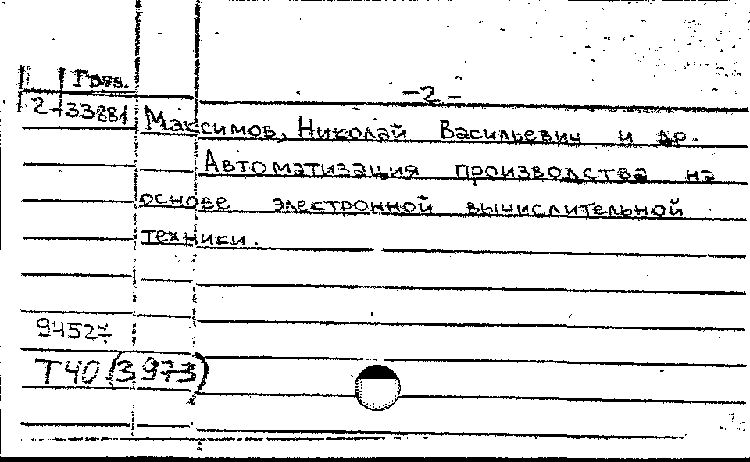 -2-
2-33881
Максимов, Николай Васильевич и др.
Автоматизация производства на
основе электронной вычислительной
техники.
94527
Т40(3973)